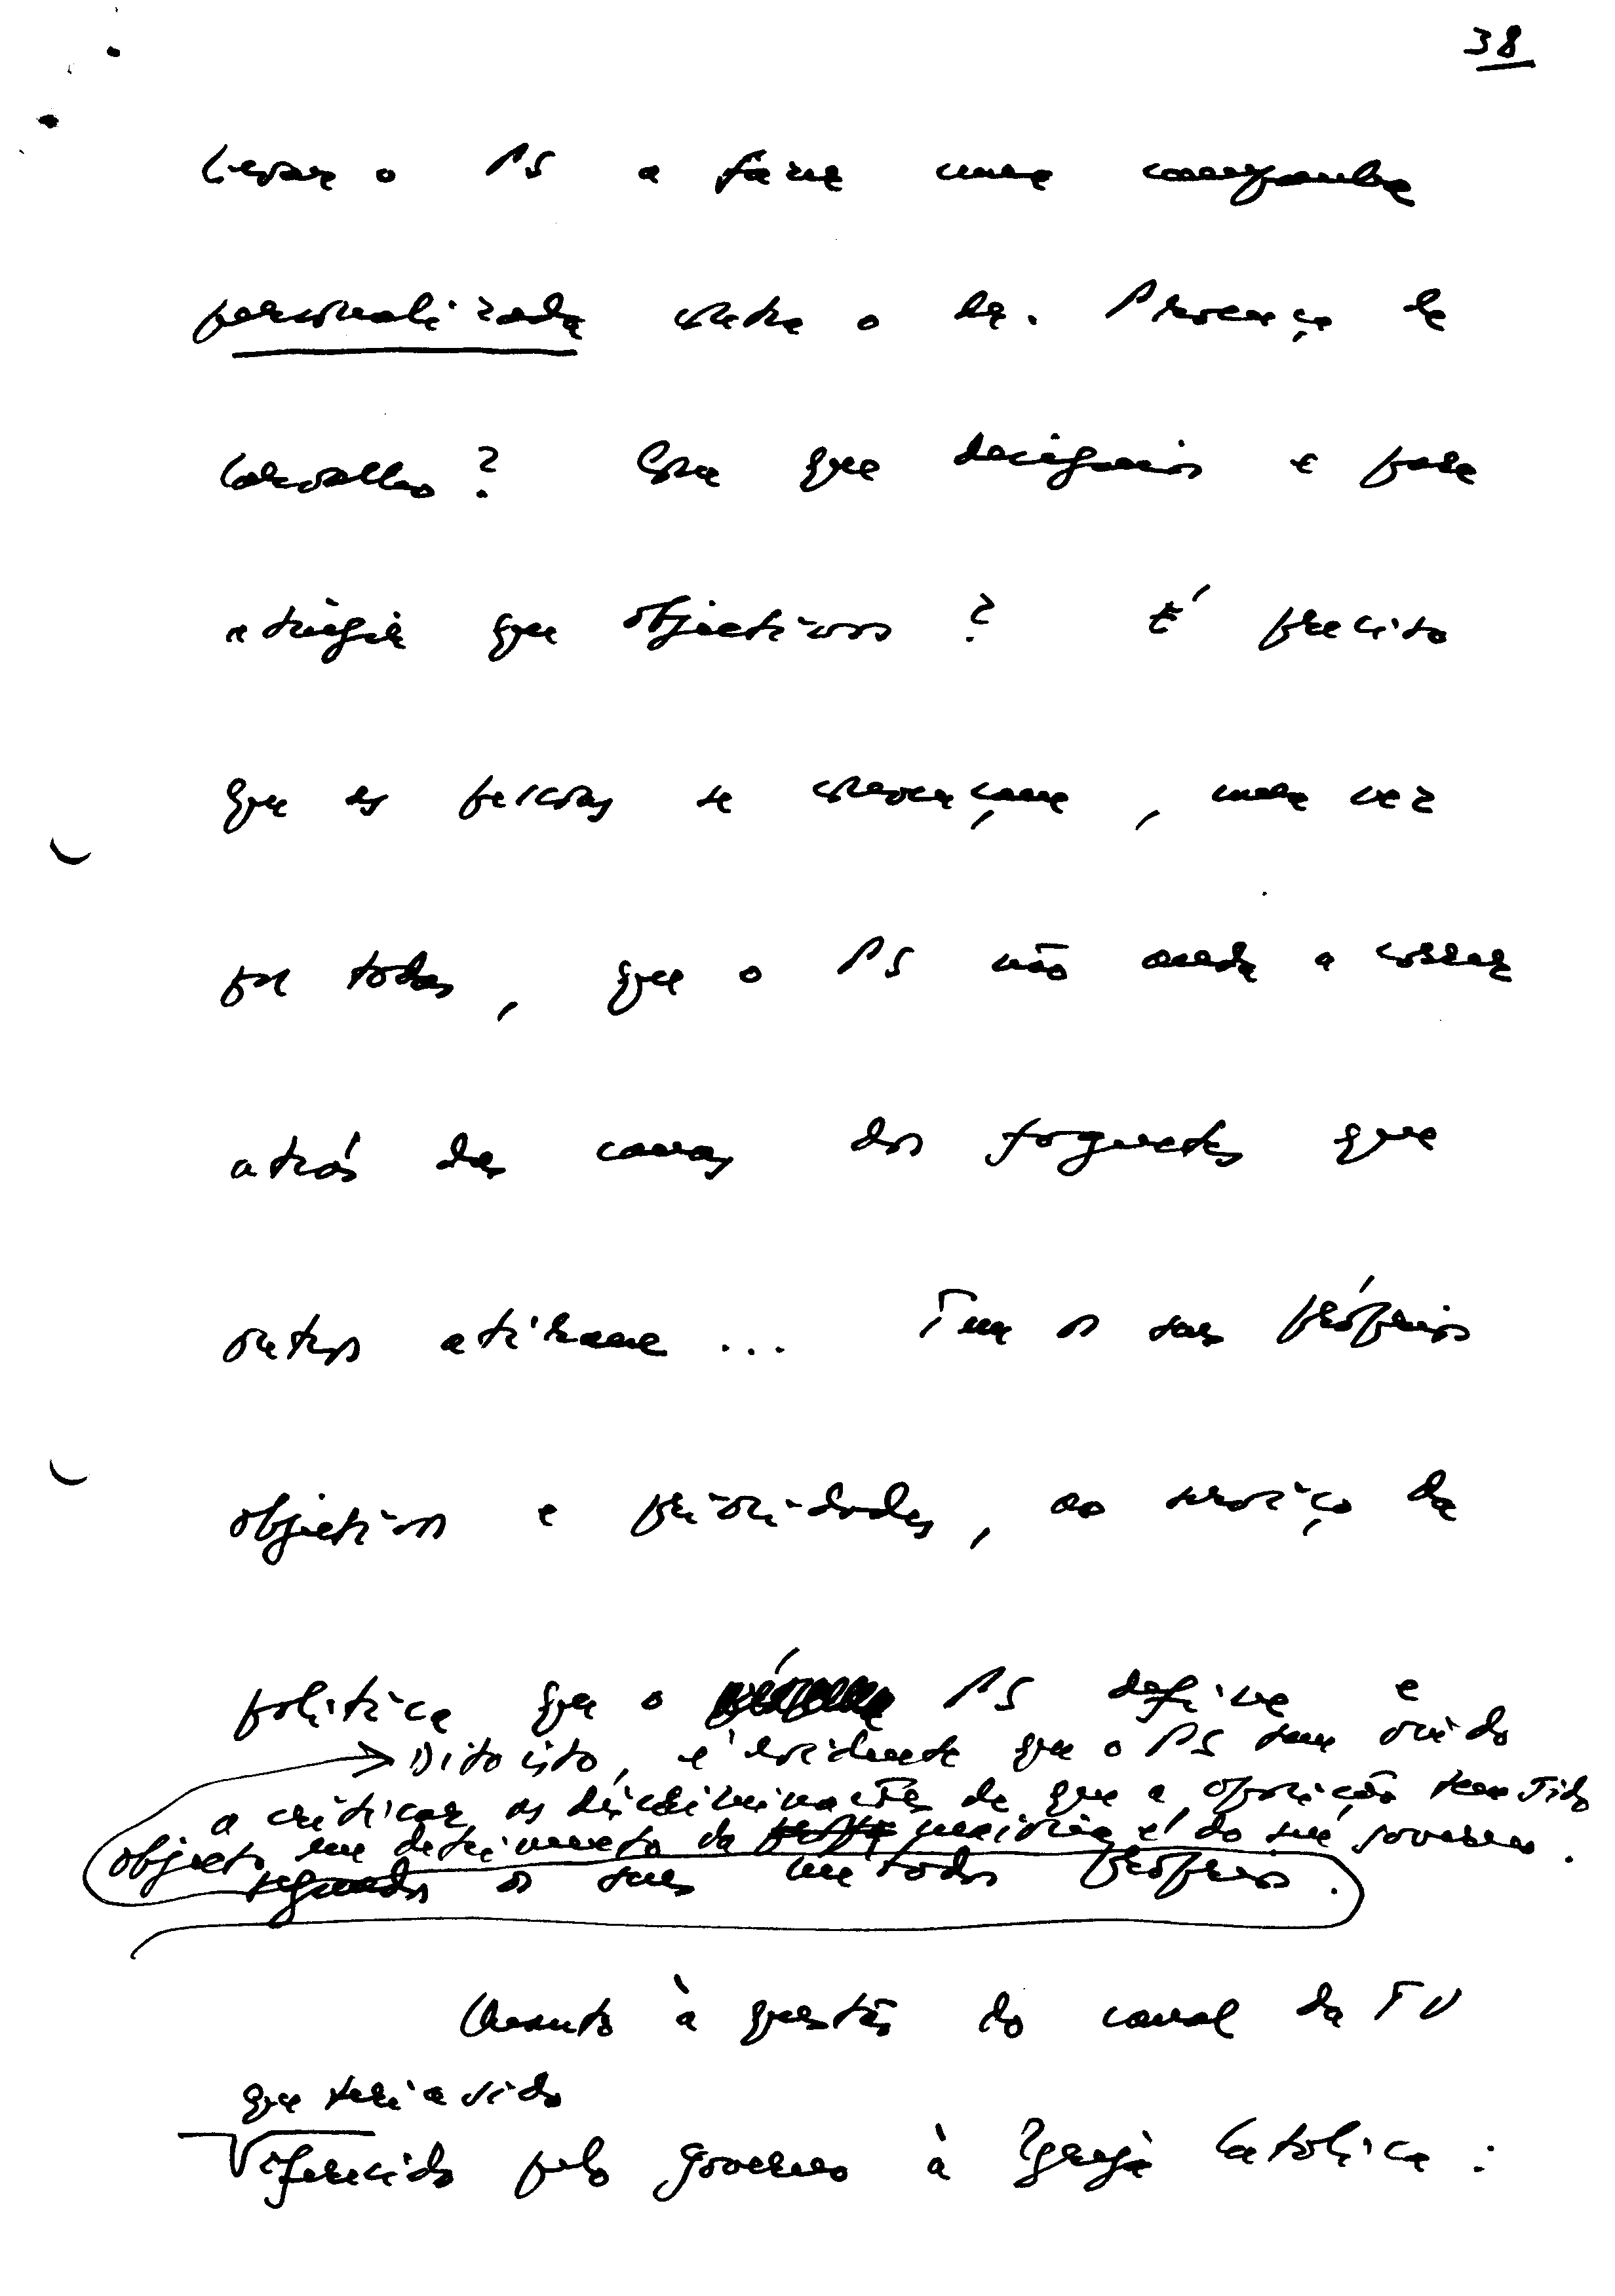 38
levar o PS a fazer uma campanha
personalizada contra o dr. Proença de
Carvalho? Com que desígnios e para
atingir que objectivos? É preciso
que as pessoas se convençam, uma vez
por todas, que o PS não anda a correr
atrás das canas dos foguetes que
outros atiram... Tem os seus próprios
objectivos e prioridades, ao serviço da
política que o PS define e
segundo os seus métodos próprios.
→ Dito isto, é evidente que o PS tem vindo
a criticar as discriminações de que a oposição tem sido
objecto em detrimento da maioria e do seu governo.
Quanto à questão do canal da TV
que teria sido
oferecido pelo governo à Igreja Católica: